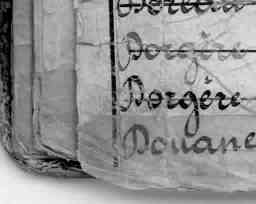 Dorgère
Dorgère
Douane